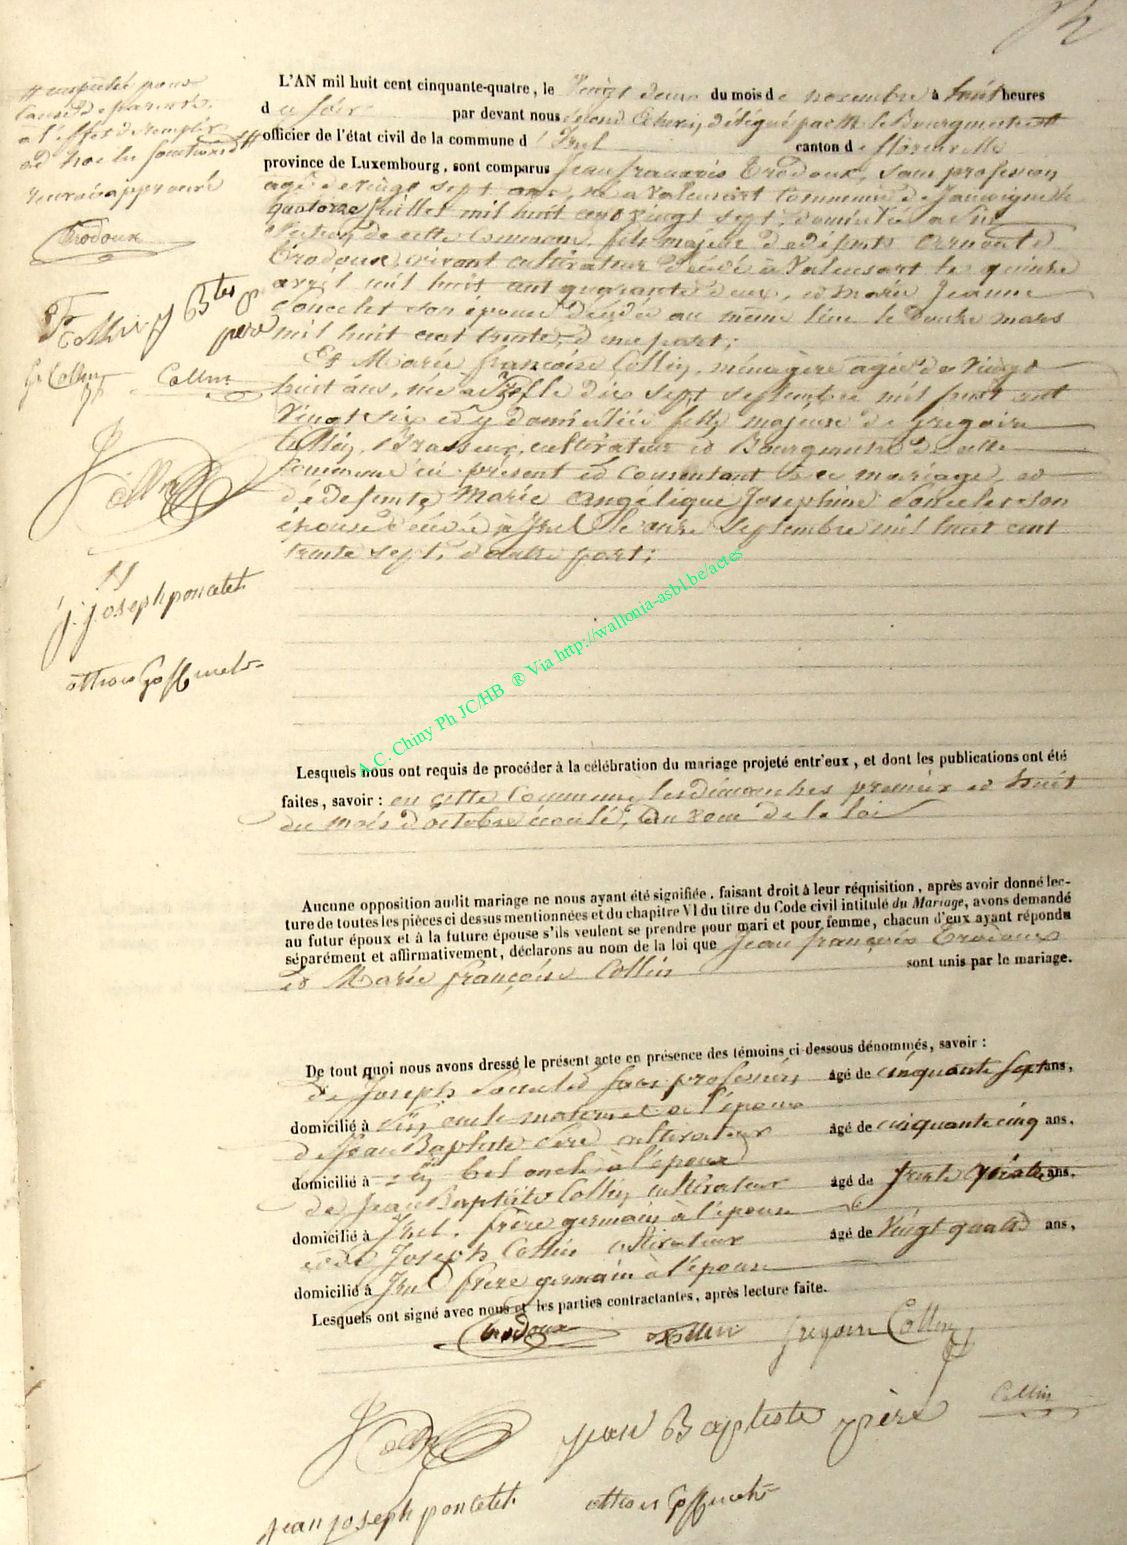 # empêché pour
cause de parenté
à l'effet de remplir
ad hoc les fonctions d'#
Renvoi approuvé
Trodoux
F Collin
J Btes
père
G Collin
Collin
Collin
J. Joseph poncelet
L'AN mil huit cent cinquante-quatre, le Vingt deux du mois de novembre à huit heures
du soir par devant nous délégué par Mr le Bourgmestre #
officier de l'état civil de la commune d'Izel canton de florenville
province de Luxembourg, sont comparus Jean françois Trodoux, sans profession
agé de vingt sept ans, né à Valensart Commune de Jamoigne le
quatorze juillet mil huit cent vingt sept, domicilié à
Section de cette Commune, fils majeur de défunts
Trodoux, vivant cultivateur décédé à Valensart le quinze
avril mil huit cent quarante deux, et Marie Jeanne
Poncelet son épouse décédée au même lieu le douze mars
mil huit cent trente, d'une part;
Et Marie françoise Collin, ménagère agée de Vingt
huit ans, née à Izel le dix sept septembre mil huit cent
Vingt six et y domiciliée fille majeure de Grégoire
Collin, Brasseur, cultivateur et Bourgmestre de cette
Commune ici présent et consentant à ce mariage, et
de défunte Marie Angélique Joséphine Poncelet son
épouse décédée à Izel le onze Septembre mil huit cent
trente sept, d'autre part;
A.C. Chiny Ph JC/HB ® Via http://wallonia-asbl.be/actes
Lesquels nous ont requis de procéder à la célébration du mariage projeté entr'eux, et dont les publications ont été
faites, savoir : en cette Commune, les dimanches premier et huit
du mois d'octobre écoulé, au vœu de la loi
Aucune opposition audit mariage ne nous ayant été signifiée, faisant droit à leur réquisition, après avoir donné lec-
ture de toutes les pièces ci dessus mentionnées et du chapitre VI du titre du Code civil intitulé du Mariage, avons demandé
au futur époux et à la future épouse s'ils veulent se prendre pour mari et pour femme, chacun d'eux ayant répondu
séparément et affirmativement, déclarons au nom de la loi que Jean françois Trodoux
et Marie françoise Collin sont unis par le mariage.
De tout quoi nous avons dressé le présent acte en présence des témoins ci-dessous dénommés, savoir :
de Joseph Poncelet sans profession âgé de cinquante sept ans,
domicilié à oncle maternel de l'époux
de Jean Baptiste Père cultivateur âgé de cinquante cinq ans,
domicilié à bel oncle à l'époux
de Jean Baptiste Collin cultivateur âgé de trente ans,
domicilié à Izel, frère germain à l'épouse
et de Joseph Collin cultivateur âgé de Vingt quatre ans,
domicilié à Izel frère germain à l'épouse
Lesquels ont signé avec nous et les parties contractantes, après lecture faite.
Trodoux Collin Grégoire Collin
Collin Jean Baptiste père Collin
Jean joseph poncelet